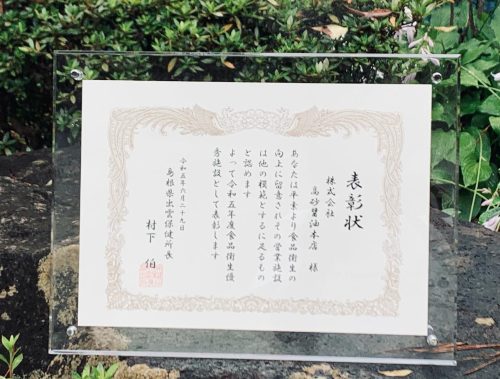 表彰状
株式会社
高砂醤油本店 様
あなたは平素より食品衛生の
向上に留意されその営業施設
は他の模範とするに足るもの
と認めます
よって令和五年度食品衛生優
秀施設として表彰します
令和五年六月二十九日
島根県出雲保健所長
村下 伯